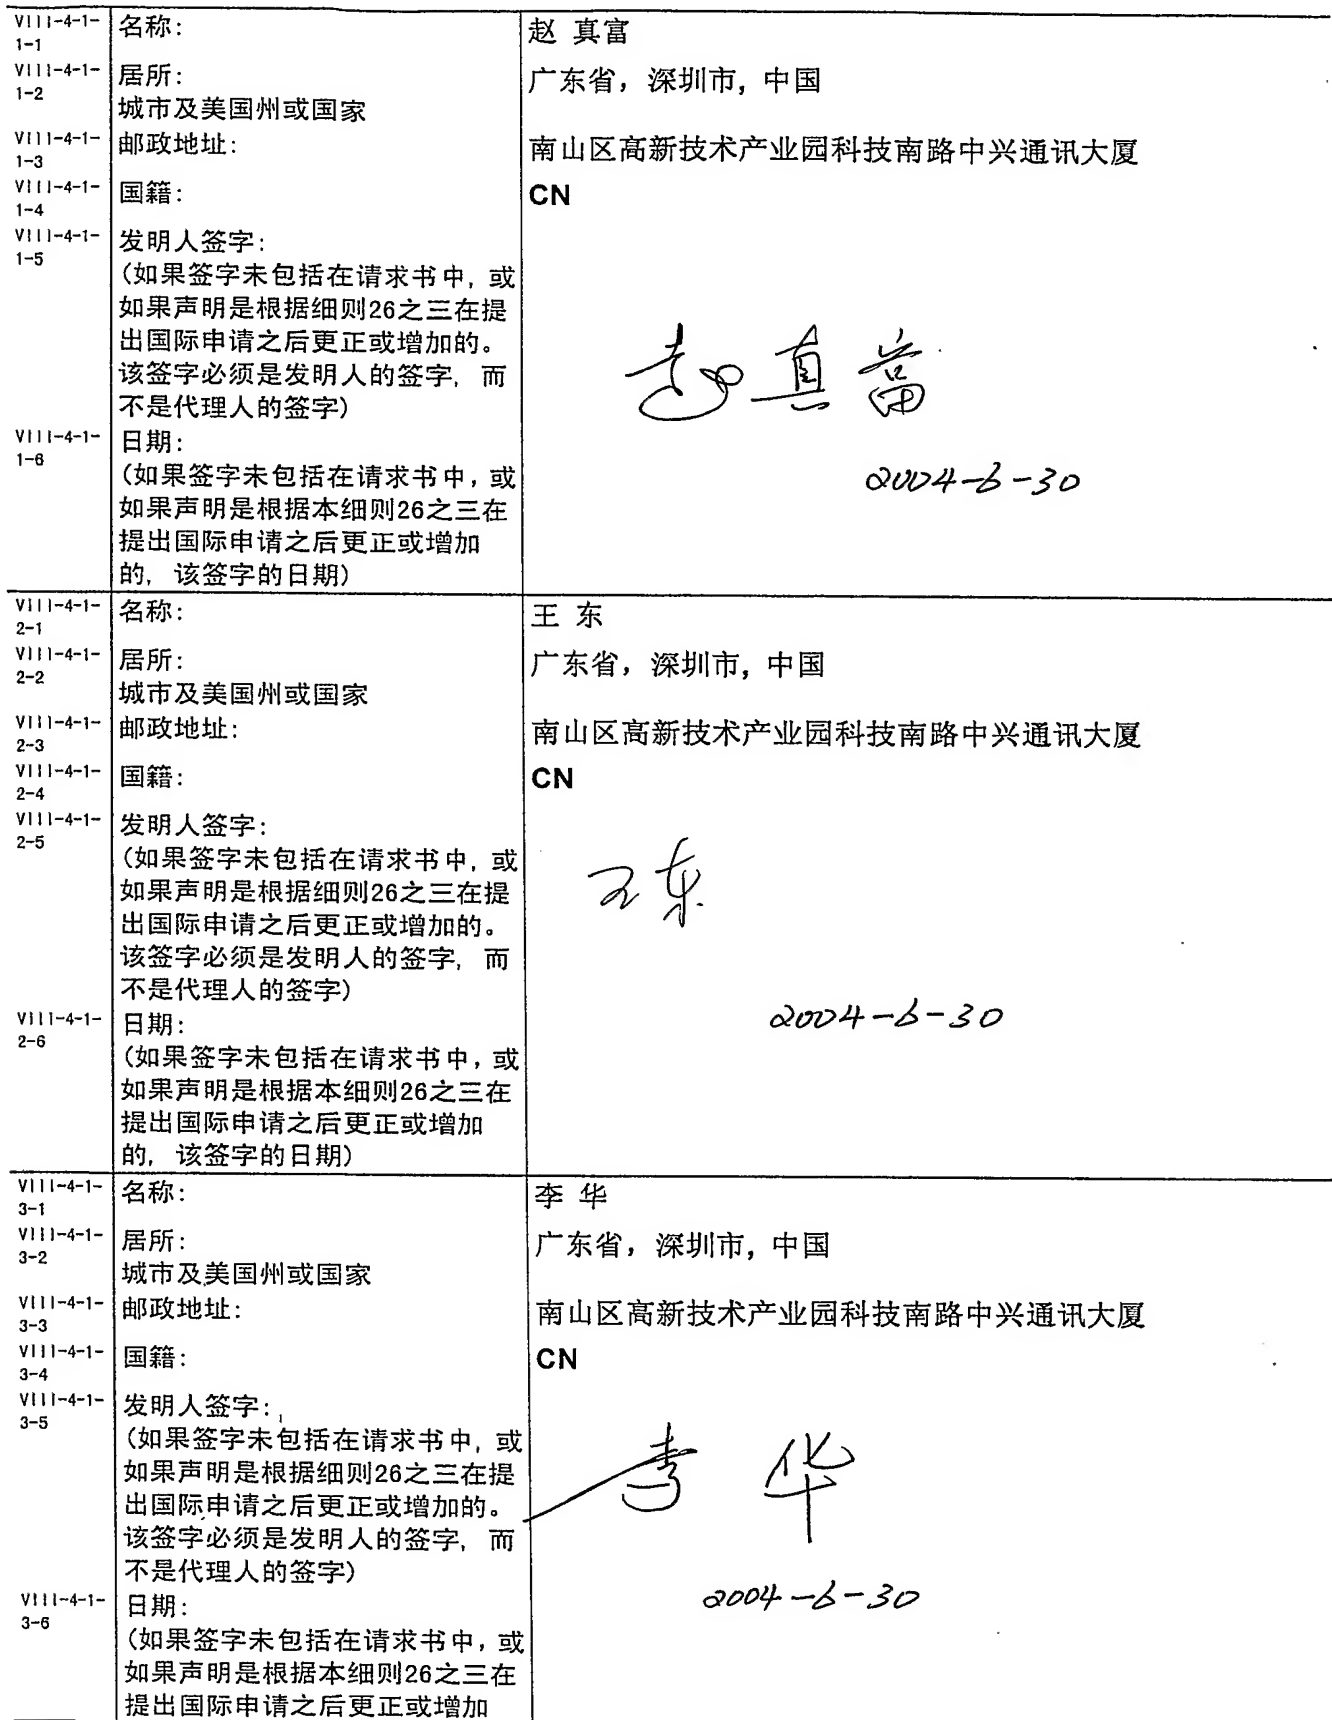 VIII-4-1-1-1 名称: 赵 真富
VIII-4-1-1-2 居所: 广东省, 深圳市, 中国
城市及美国州或国家
VIII-4-1-1-3 邮政地址: 南山区高新技术产业园科技南路中兴通讯大厦
VIII-4-1-1-4 国籍: CN
VIII-4-1-1-5 发明人签字:
(如果签字未包括在请求书中, 或
如果声明是根据细则26之三在提
出国际申请之后更正或增加的。
该签字必须是发明人的签字, 而
不是代理人的签字)
赵真富
VIII-4-1-1-6 日期:
(如果签字未包括在请求书中, 或
如果声明是根据本细则26之三在
提出国际申请之后更正或增加
的, 该签字的日期)
2004-6-30
VIII-4-1-2-1 名称: 王 东
VIII-4-1-2-2 居所: 广东省, 深圳市, 中国
城市及美国州或国家
VIII-4-1-2-3 邮政地址: 南山区高新技术产业园科技南路中兴通讯大厦
VIII-4-1-2-4 国籍: CN
VIII-4-1-2-5 发明人签字:
(如果签字未包括在请求书中, 或
如果声明是根据细则26之三在提
出国际申请之后更正或增加的。
该签字必须是发明人的签字, 而
不是代理人的签字)
王东
VIII-4-1-2-6 日期:
(如果签字未包括在请求书中, 或
如果声明是根据本细则26之三在
提出国际申请之后更正或增加
的, 该签字的日期)
2004-6-30
VIII-4-1-3-1 名称: 李 华
VIII-4-1-3-2 居所: 广东省, 深圳市, 中国
城市及美国州或国家
VIII-4-1-3-3 邮政地址: 南山区高新技术产业园科技南路中兴通讯大厦
VIII-4-1-3-4 国籍: CN
VIII-4-1-3-5 发明人签字:
(如果签字未包括在请求书中, 或
如果声明是根据细则26之三在提
出国际申请之后更正或增加的。
该签字必须是发明人的签字, 而
不是代理人的签字)
李 华
VIII-4-1-3-6 日期:
(如果签字未包括在请求书中, 或
如果声明是根据本细则26之三在
提出国际申请之后更正或增加
2004-6-30